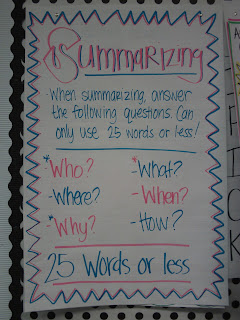 Summarizing
-When summarizing, answer
the following questions. Can
only use 25 words or less!
*Who? -What?
-Where? *When?
*Why? -How?
25 Words or less